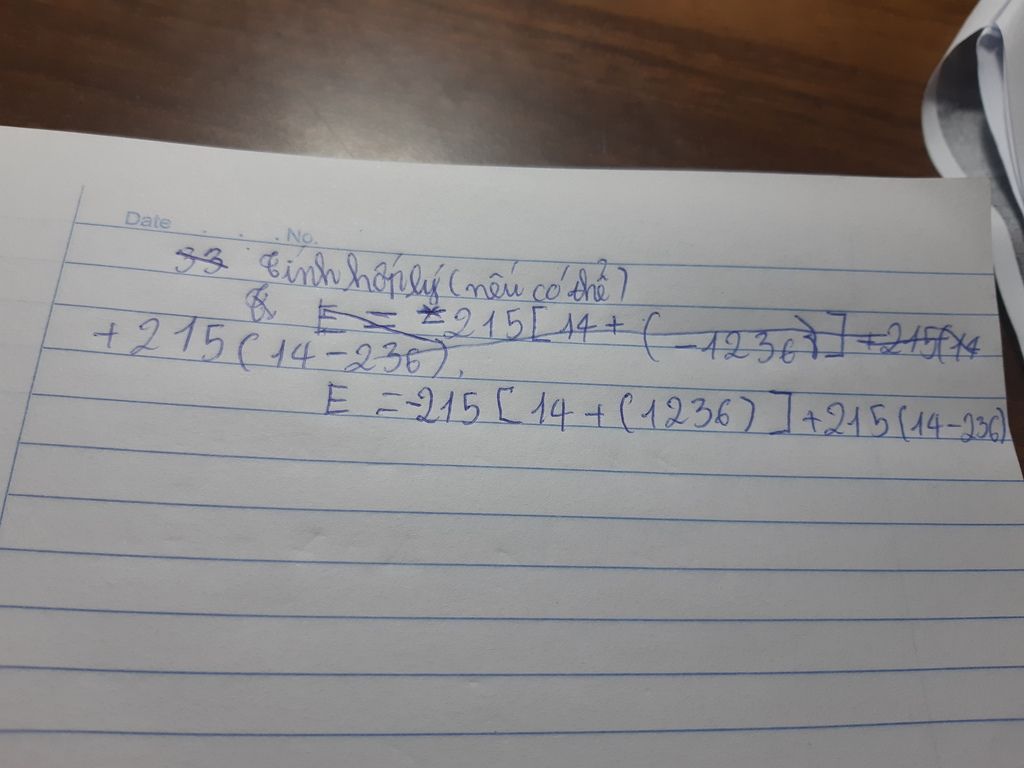 Date . . . No.
33 tính hợp lý (nếu có thể)
E = -215 [14 + (-1236)] + 215(14
+215(14-236).
E = -215 [14 + (1236)] +215(14-236)